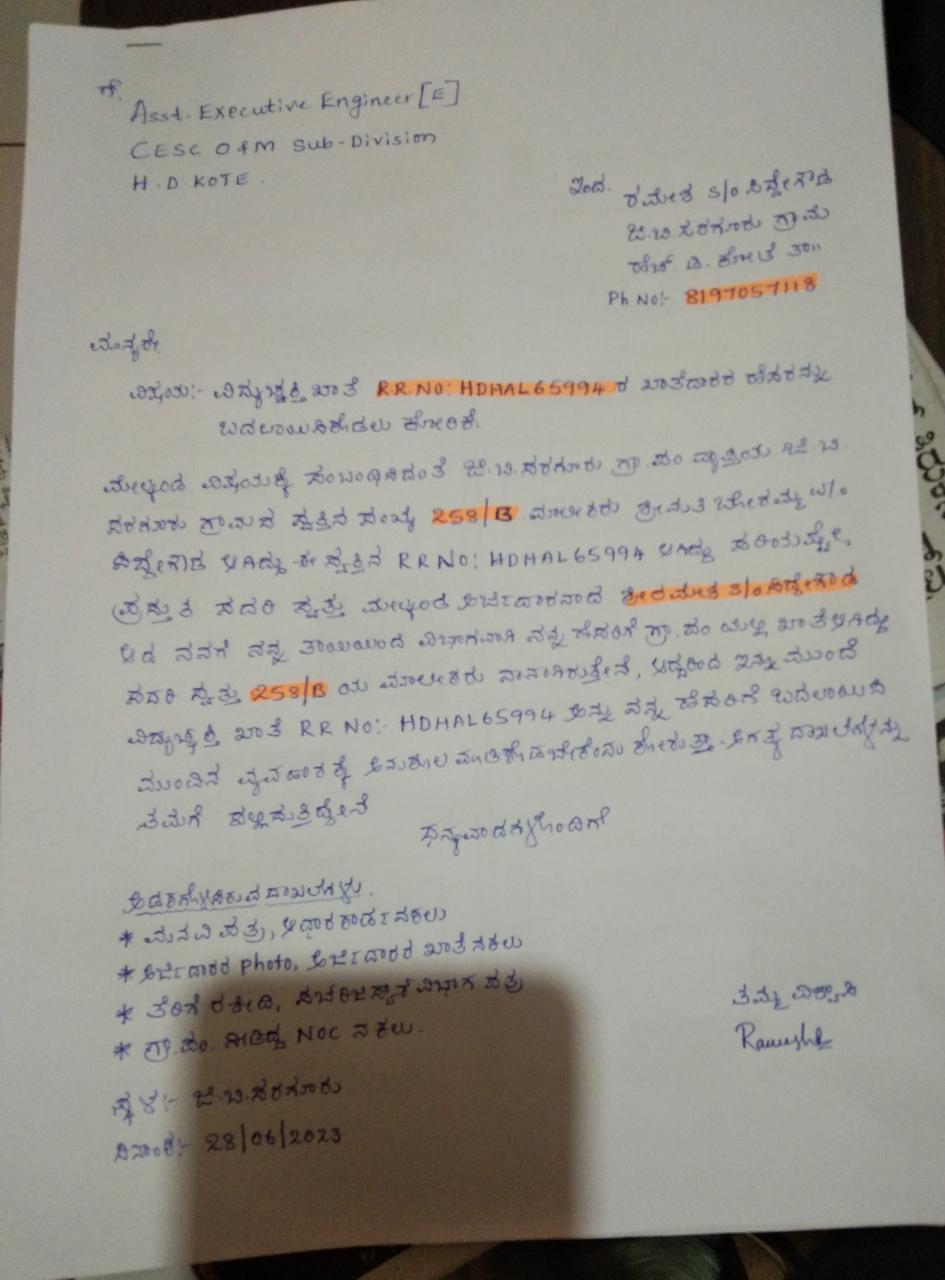 ಗೆ,
Asst. Executive Engineer [E]
CESC O&M Sub-Division
H.D.KOTE.
ಇಂದ.
ರಮೇಶ S/o ಸಿದ್ದೇಗೌಡ
ಜಿ.ಬಿ.ಸರಗೂರು ಗ್ರಾಮ
ಹೆಚ್. ಡಿ. ಕೋಟೆ ತಾ॥
Ph No:- 8197057118
ಮಾನ್ಯರೇ,
ವಿಷಯ:- ವಿದ್ಯುಚ್ಛಕ್ತಿ ಖಾತೆ R.R.NO: HDHAL65994 ರ ಖಾತೆದಾರರ ಹೆಸರನ್ನು
ಬದಲಾಯಿಸಿಕೊಡಲು ಕೋರಿಕೆ.
ಮೇಲ್ಕಂಡ ವಿಷಯಕ್ಕೆ ಸಂಬಂಧಿಸಿದಂತೆ ಜಿ.ಬಿ.ಸರಗೂರು ಗ್ರಾ.ಪಂ ವ್ಯಾಪ್ತಿಯ ಜಿ.ಬಿ.
ಸರಗೂರು ಗ್ರಾಮದ ಸ್ವತ್ತಿನ ಸಂಖ್ಯೆ 258/B ಮಾಲೀಕರು ಶ್ರೀಮತಿ ಬೋರಮ್ಮ W/o
ಸಿದ್ದೇಗೌಡ ಆಗಿದ್ದು ಈ ಸ್ವತ್ತಿನ R R NO: HDHAL65994 ಆಗಿದ್ದು ಸರಿಯಷ್ಟೇ,
ಪ್ರಸ್ತುತ ಸದರಿ ಸ್ವತ್ತು ಮೇಲ್ಕಂಡ ಅರ್ಜಿದಾರನಾದ ಶ್ರೀರಮೇಶ S/o ಸಿದ್ದೇಗೌಡ
ಆದ ನನಗೆ ನನ್ನ ತಾಯಿಯಿಂದ ವಿಭಾಗವಾಗಿ ನನ್ನ ಹೆಸರಿಗೆ ಗ್ರಾ.ಪಂ ಯಲ್ಲಿ ಖಾತೆಆಗಿದ್ದು
ಸದರಿ ಸ್ವತ್ತು 258/B ಯ ಮಾಲೀಕರು ನಾನಾಗಿರುತ್ತೇನೆ, ಆದ್ದರಿಂದ ಇನ್ನು ಮುಂದೆ
ವಿದ್ಯುಚ್ಛಕ್ತಿ ಖಾತೆ R R NO:- HDHAL65994 ಅನ್ನು ನನ್ನ ಹೆಸರಿಗೆ ಬದಲಾಯಿಸಿ
ಮುಂದಿನ ವ್ಯವಹಾರಕ್ಕೆ ಅನುಕೂಲ ಮಾಡಿಕೊಡಬೇಕೆಂದು ಕೋರುತ್ತಾ. ಅಗತ್ಯ ದಾಖಲೆಗಳನ್ನು
ತಮಗೆ ಸಲ್ಲಿಸುತ್ತಿದ್ದೇನೆ
ಧನ್ಯವಾದಗಳೊಂದಿಗೆ
ಅಡಕಗೊಳಿಸಿರುವ ದಾಖಲೆಗಳು.
* ಮನವಿ ಪತ್ರ, ಆಧಾರಕಾರ್ಡ ನಕಲು
* ಅರ್ಜಿದಾರರ Photo, ಅರ್ಜಿದಾರರ ಖಾತೆ ನಕಲು
* ತೆರಿಗೆ ರಶೀದಿ, ವಿಭಾಗ ಪತ್ರ
* ಗ್ರಾ.ಪಂ. ನೀಡಿದ್ದ NOC ನಕಲು.
ತಮ್ಮ ವಿಶ್ವಾಸಿ
Ramesha
ಸ್ಥಳ:- ಜಿ.ಬಿ.ಸರಗೂರು
ದಿನಾಂಕ:- 28/06/2023